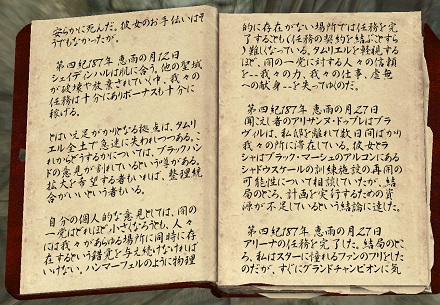 安らかに死んだ。彼女のお手伝いはそ
うでもなかったが。
第四紀187年 恵雨の月12日
シェイディンハルは肌に合う。他の聖域
が破壊や放棄されていく中、我々の
任務は十分にありボーナスも十分に
稼げる。
とはいえ足がかりとなる拠点は、タムリ
エル全土で急速に失われつつある。こ
れからどうするかについては、ブラックハン
ドの意見が割れているという噂がある。
拡大を希望する者もいれば、整理統
合がいいという者もいる。
自分の個人的な意見としては、闇の
一党はどれほど小さくなろうとも、人々
には我々があらゆる場所に同時に存
在するという錯覚を与え続けなければ
いけない。ハンマーフェルのように物理
的に存在がない場所では任務を完
了するとも(任務の契約を結ぶことすら)
難しくなっている。タムリエルを軽視する
ほど、闇の一党に対する人々の信頼
を--我々の力、我々の仕事、虚無
への献身--を失ってゆくのだ。
第四紀187年 恵雨の月27日
聞こえし者のアリサンヌ・ドゥプレはブラ
ヴィルは、私邸を離れて数日間ばかり
我々の所に滞在している。彼女とラ
シャはブラック・マーシュのアルコンにある
シャドウスケールの訓練施設の再開の
可能性について相談していたが、結
局のところ、計画を実行するための資
源が不足しているという結論に達した。
第四紀187年 恵雨の月27日
アリーナの任務を完了した。結局のとこ
ろ、私はスターに憧れたファンのフリをした
のだが、すぐにグランドチャンピオンに気